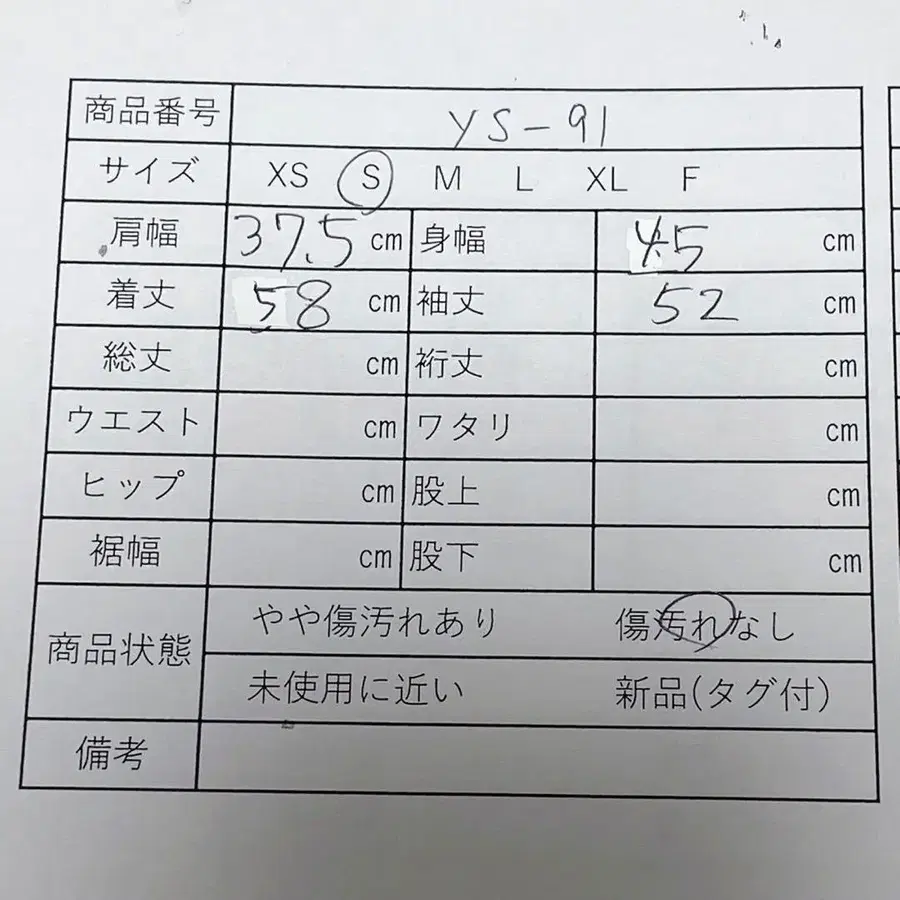 商品番号 YS-91
サイズ XS S M L XL F
肩幅 37.5 cm 身幅 45 cm
着丈 58 cm 袖丈 52 cm
総丈 cm 裄丈 cm
ウエスト cm ワタリ cm
ヒップ cm 股上 cm
裾幅 cm 股下 cm
商品状態 やや傷汚れあり 傷汚れなし
未使用に近い 新品(タグ付)
備考